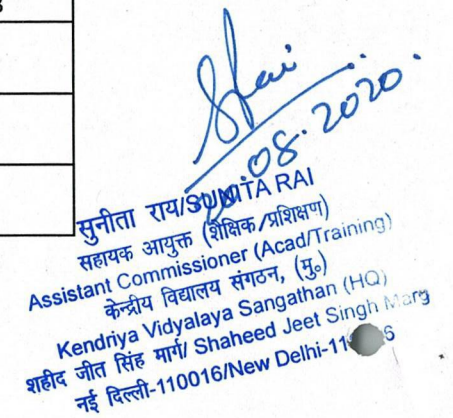 08.2020.
सुनीता राय/SUNITA RAI
सहायक आयुक्त (शैक्षिक/प्रशिक्षण)
Assistant Commissioner (Acad/Training)
केन्द्रीय विद्यालय संगठन, (मु०)
Kendriya Vidyalaya Sangathan (HQ)
शहीद जीत सिंह मार्ग/ Shaheed Jeet Singh Marg
नई दिल्ली-110016/New Delhi-11